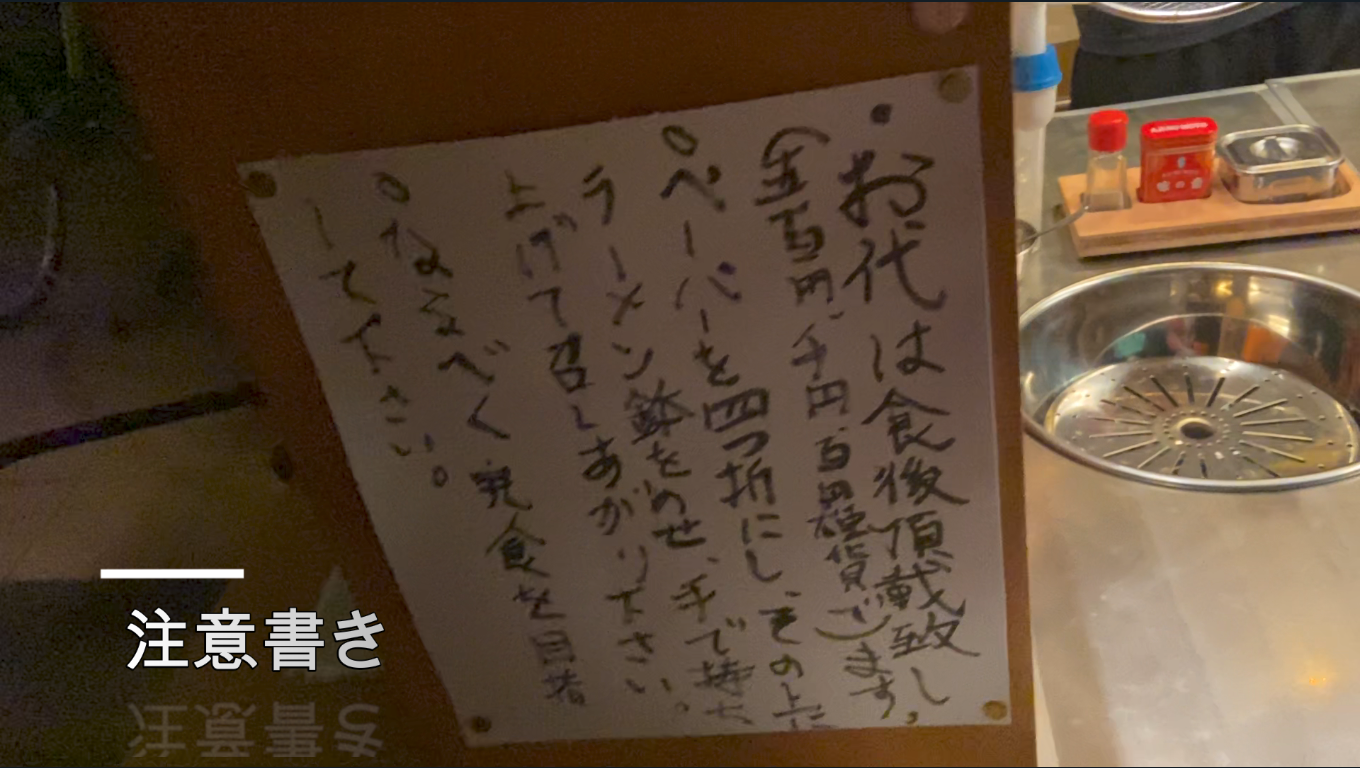 ・お代は食後頂戴致します。
(金百円、千円、百円硬貨で)
○ペーパーを四つ折にし、その上に
ラーメン鉢をのせ、手で持ち
上げて召しあがり下さい。
○なるべく完食を目指
して下さい。
注意書き